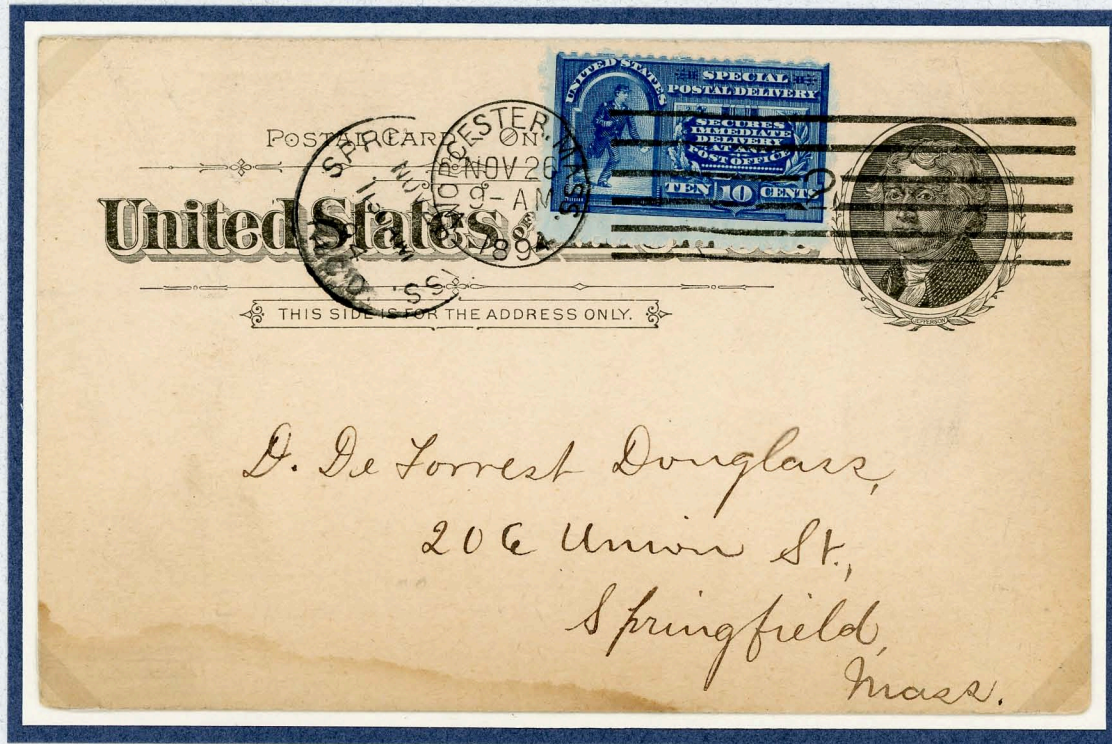 POSTAL CARD ON
United States of
THIS SIDE IS FOR THE ADDRESS ONLY.
WORCESTER, MASS.
NOV 26
9- AM
1894
UNITED STATES
SPECIAL
POSTAL DELIVERY
SECURES
IMMEDIATE
DELIVERY
AT ANY
POST OFFICE
TEN 10 CENTS
JEFFERSON
D. De Forrest Douglass,
206 Union St.,
Springfield,
Mass.